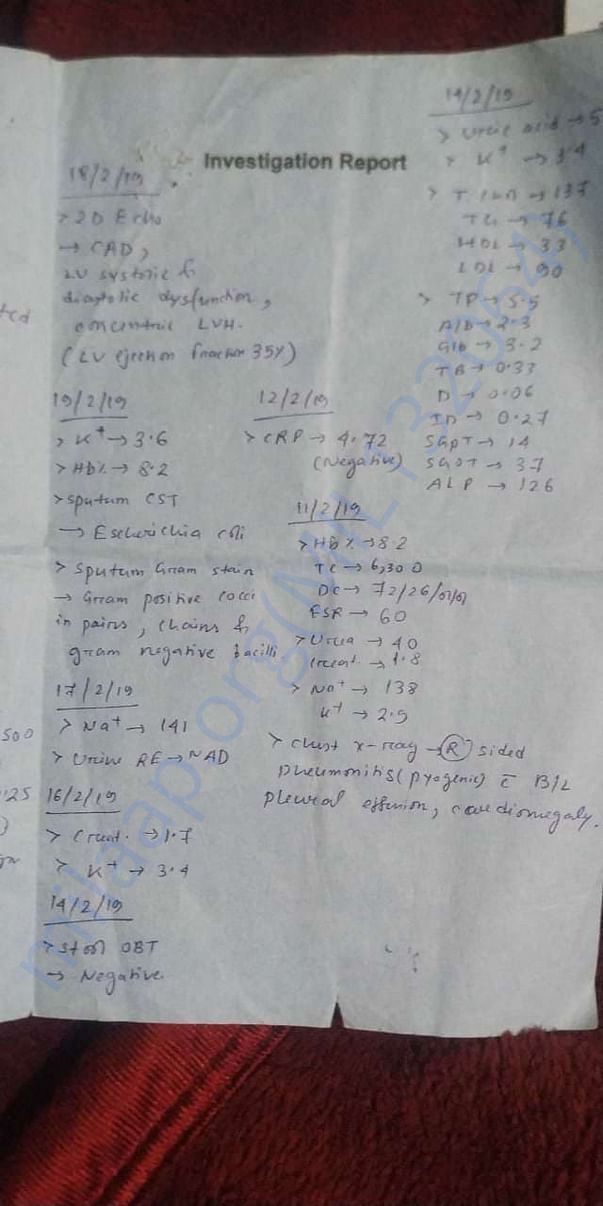 Investigation Report
18/2/19
> 2D Echo
→ CAD,
LV systolic &
diastolic dysfunction,
concentric LVH.
(LV ejection fraction 35%)
19/2/19
> K+ → 3.6
> Hb% → 8.2
> Sputum CST
→ Escherichia coli
> Sputum Gram stain
→ Gram positive cocci
in pairs, chains &
gram negative bacilli
17/2/19
> Na+ → 141
> Urine RE → NAD
16/2/19
> Creat. → 1.7
> K+ → 3.4
14/2/19
> Stool OBT
→ Negative
12/2/19
> CRP → 4.72
(Negative)
11/2/19
> Hb% → 8.2
TC → 6,300
DC → 72/26/01/01
ESR → 60
> Urea → 40
Creat. → 1.8
> Na+ → 138
K+ → 2.9
> Chest x-ray → R sided
pneumonitis (pyogenic) c̄ B/L
pleural effusion, cardiomegaly.
14/2/19
> Uric acid → 5
> K+ → 3.4
> T → 137
TG → 76
HDL → 33
LDL → 90
> TP → 5.5
Alb → 2.3
Glb → 3.2
TB → 0.33
D → 0.06
ID → 0.27
SGPT → 14
SGOT → 37
ALP → 126
ted
500
125
milaap.org(MIL1332064)